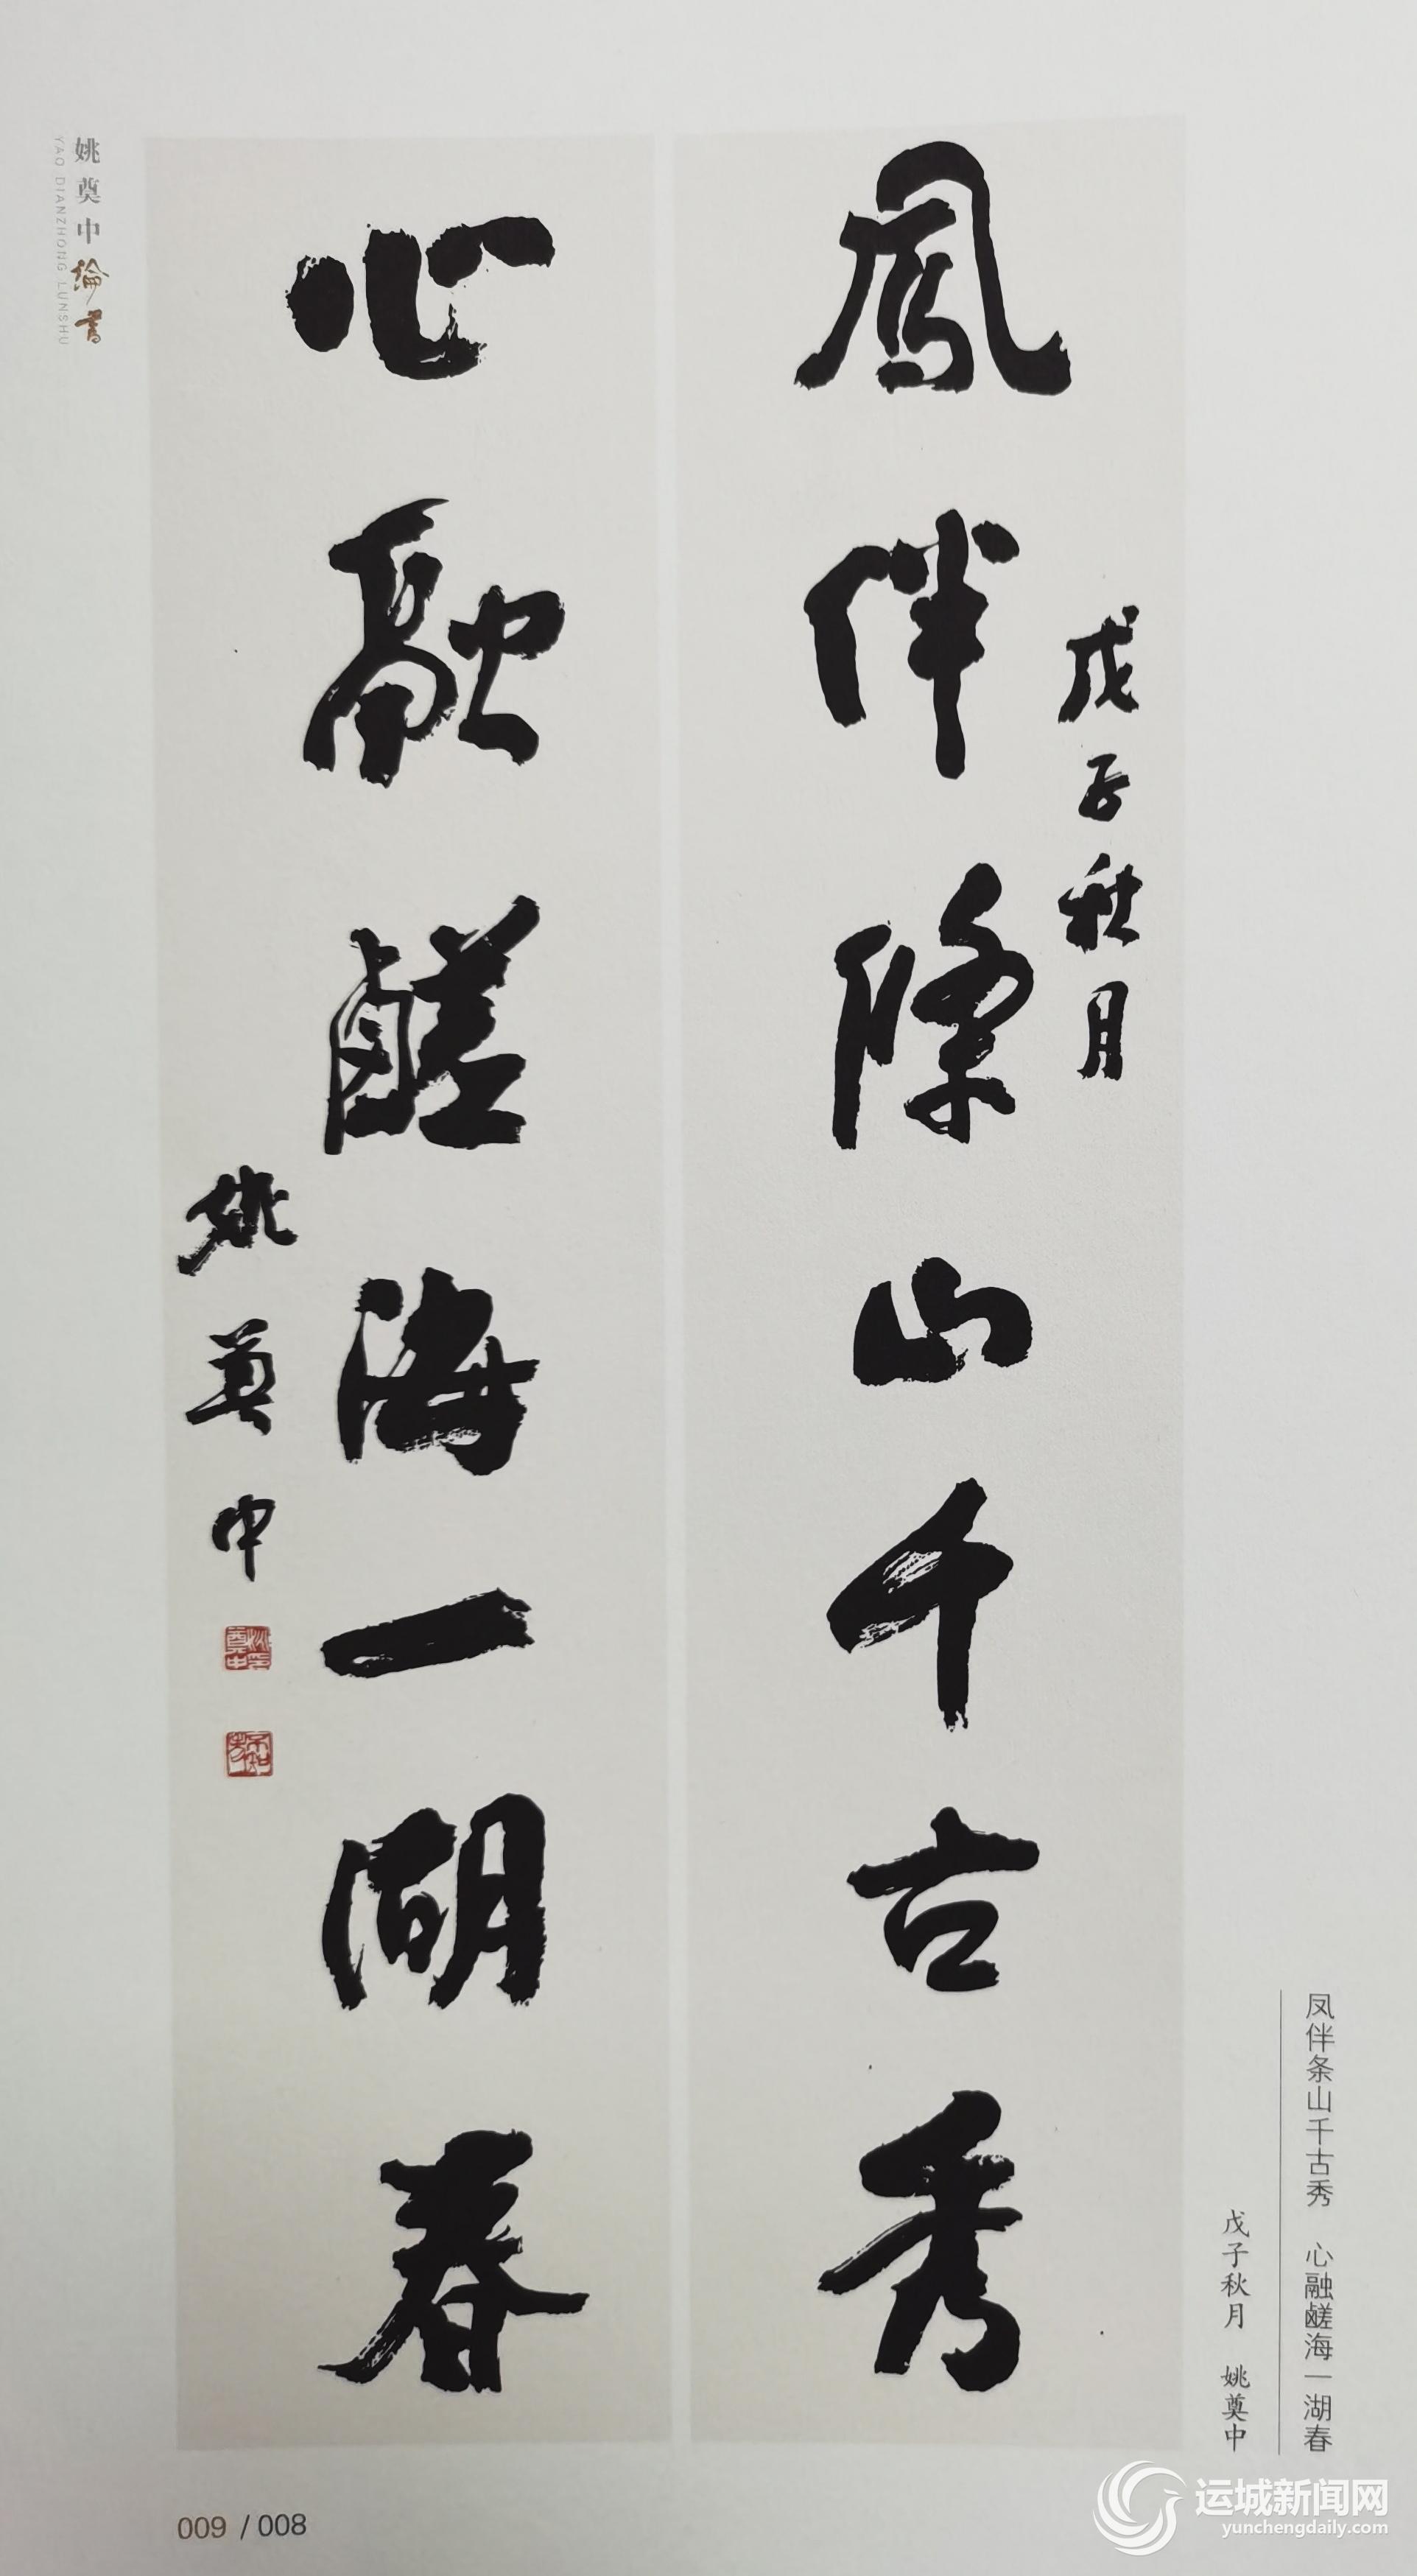 鳳伴條山千古秀
戊子秋月
心融鹺海一湖春
姚奠中
凤伴条山千古秀 心融鹾海一湖春
戊子秋月 姚奠中
姚奠中論書
YAO DIANZHONG LUNSHU
009 / 008
运城新闻网
yunchengdaily.com